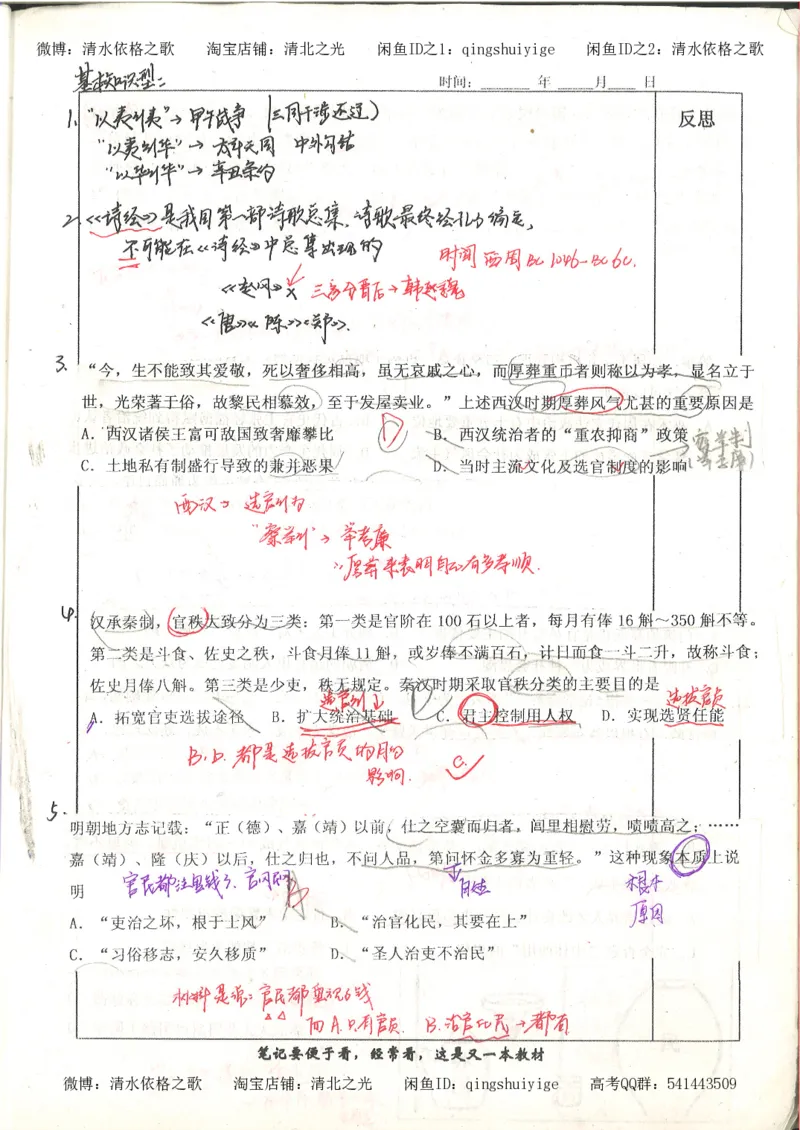 微博：清水依格之歌 淘宝店铺：清北之光 闲鱼ID之1：qingshuiyige 闲鱼ID之2：清水依格之歌
基本知识型二
时间：______ 年 _____月____ 日
反思
1. “以夷制夷”→ 甲午战争 (三国干涉还辽)
“以夷制华”→ 太平天国 中外勾结
“以华制华”→ 辛丑条约
2.《诗经》是我国第一部诗歌总集，诗歌最终经孔子编定，
不可能在《诗经》中总集出现的
时间 西周BC 1046-BC 6C.
《赵风》× 三家分晋后→韩赵魏
《唐》《陈》《郑》.
3. “今，生不能致其爱敬，死以奢侈相高，虽无哀戚之心，而厚葬重币者则称以为孝，显名立于
世，光荣著于俗，故黎民相慕效，至于发屋卖业。”上述西汉时期厚葬风气尤甚的重要原因是
A. 西汉诸侯王富可敌国致奢靡攀比 D B. 西汉统治者的“重农抑商”政策
察举制
C. 土地私有制盛行导致的兼并恶果 D. 当时主流文化及选官制度的影响
西汉→ 选官制为
“察举制”→ 举孝廉
厚葬来表明自己有多孝顺.
4. 汉承秦制，官秩大致分为三类：第一类是官阶在 100 石以上者，每月有俸 16 斛～350 斛不等。
第二类是斗食、佐史之秩，斗食月俸 11 斛，或岁俸不满百石，计日而食一斗二升，故称斗食；
佐史月俸八斛。第三类是少吏，秩无规定。秦汉时期采取官秩分类的主要目的是
选官制 选拔官员
A. 拓宽官吏选拔途径 B. 扩大统治基础 C. 君主控制用人权 D. 实现选贤任能
B.D. 都是选拔官员的目的
影响. C.
5.
明朝地方志记载：“正（德）、嘉（靖）以前，仕之空囊而归者，闾里相慰劳，啧啧高之；……
嘉（靖）、隆（庆）以后，仕之归也，不问人品，第问怀金多寡为重轻。”这种现象本质上说
明 官民都注重钱了，官风 根本
原因
A. “吏治之坏，根于士风” B. “治官化民，其要在上”
C. “习俗移志，安久移质” D. “圣人治吏不治民”
材料是说：官民都重视钱
而 A.D.只有官员. B.治官化民→都有
笔记要便于看，经常看，这是又一本教材
微博：清水依格之歌 淘宝店铺：清北之光 闲鱼ID：qingshuiyige 高考QQ群：541443509